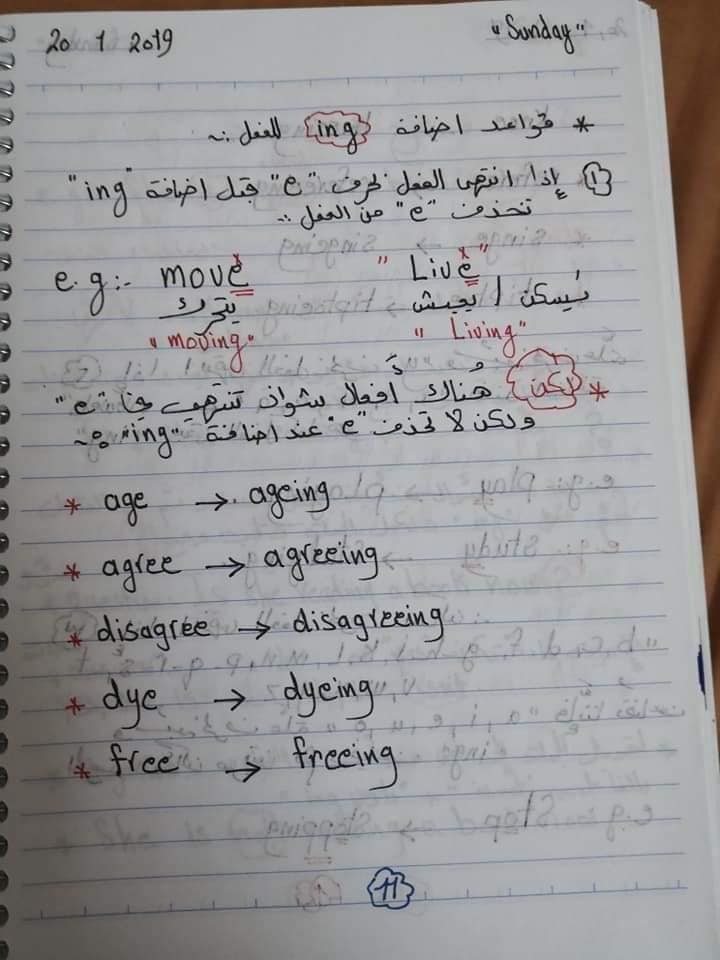 20 1 2019 "Sunday"
* قواعد اضافة ing للفعل :~
① إذا انتهى الفعل بحرف "e" قبل اضافة "ing"
تحذف "e" من الفعل :-
e.g:- move "Live"
يتحرك يسكن / يعيش
"moving" "Living"
* لكن هُناك أفعال شواذ تنتهي بـ "e"
ولكن لا تحذف "e" عند اضافة "ing" :~
* age → ageing
* agree → agreeing
* disagree → disagreeing
* dye → dyeing
* free → freeing
11